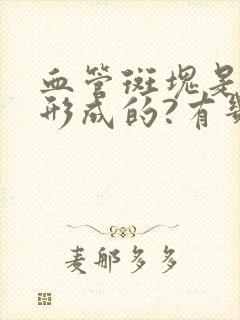 血管斑塊是
形成的?有
麦郁多多